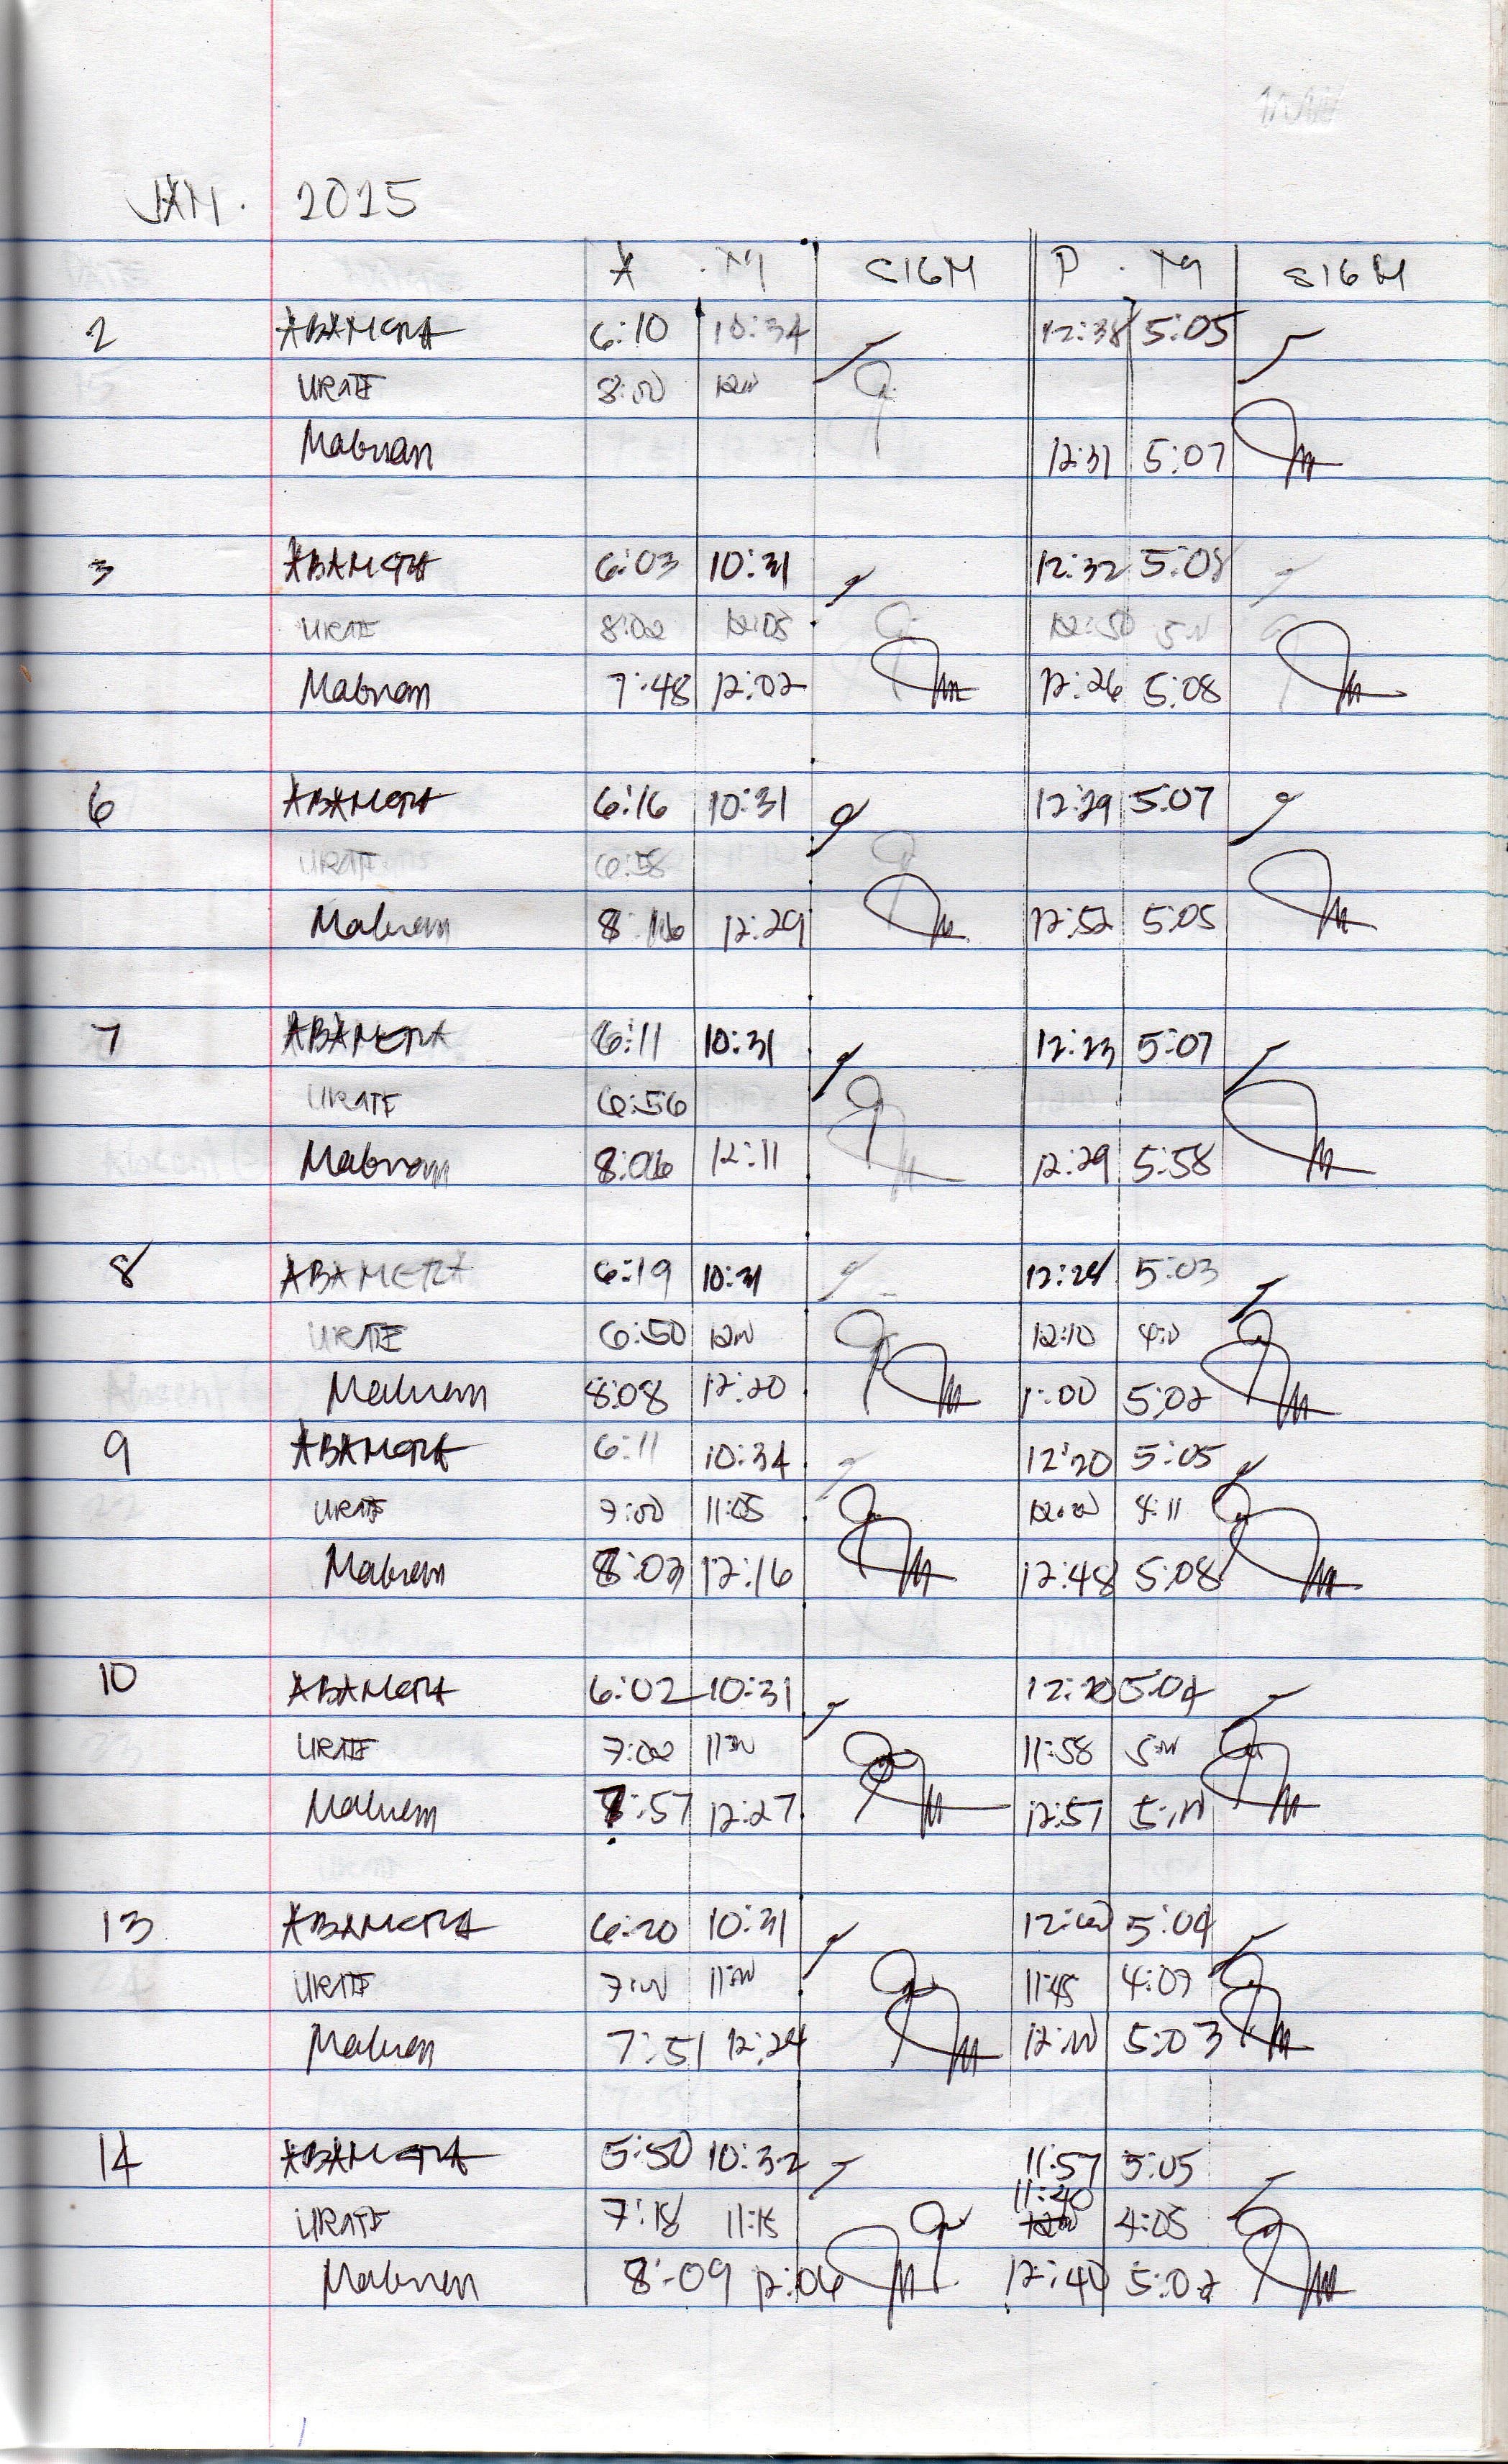 JAN. 2025
A . M SIGN P . M SIGN
2 ABAMERA 6:10 10:34 12:38 5:05
URATE 8:00 12:00
Mabuan 12:31 5:07
3 ABAMERA 6:03 10:31 12:32 5:08
URATE 8:02 12:05 12:50 5:00
Mabuan 7:48 12:02 12:26 5:08
6 ABAMERA 6:16 10:31 12:29 5:07
URATE 6:58
Mabuan 8:16 12:29 12:52 5:05
7 ABAMERA 6:11 10:31 12:23 5:07
URATE 6:56
Mabuan 8:06 12:11 12:29 5:58
8 ABAMERA 6:19 10:31 12:24 5:03
URATE 6:50 12:00 12:10 4:00
Mabuan 8:08 12:20 1:00 5:02
9 ABAMERA 6:11 10:34 12:20 5:05
URATE 7:00 11:05 12:00 4:11
Mabuan 8:03 12:16 12:48 5:08
10 ABAMERA 6:02 10:31 12:20 5:04
URATE 7:02 11:00 11:58 5:00
Mabuan :57 12:27 12:57 5:00
13 ABAMERA 6:20 10:31 5:04
URATE 7:00 11:00 11:45 4:07
Mabuan 7:51 12:24 12:00 5:03
14 ABAMERA 5:50 10:32 11:57 5:05
11:40
URATE 7:18 11:15 12:00 4:05
Mabuan 8:09 12:06 12:40 5:02